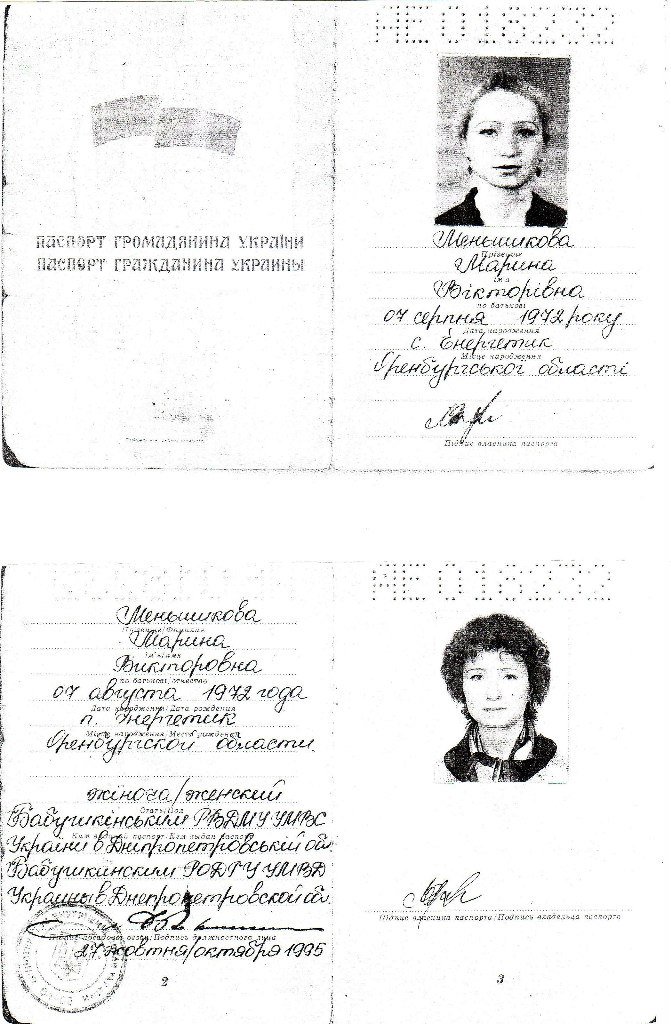 АЕ 016232
ПАСПОРТ ГРОМАДЯНИНА УКРАЇНИ
ПАСПОРТ ГРАЖДАНИНА УКРАИНЫ
Меньшикова
Прізвище
Марина
Ім'я
Вікторівна
по батькові
07 серпня 1972 року
Дата народження
с. Енергетик
Місце народження
Оренбургської області
Підпис власника паспорта
Меньшикова
Прізвище/Фамилия
Марина
Ім'я/Имя
Викторовна
по батькові/отчество
07 августа 1972 года
Дата народження/Дата рождения
п. Энергетик
Місце народження/Место рождения
Оренбургской области
жіноча/женский
Стать/Пол
Бабушкінським РВДМУ УМВС
Ким виданий паспорт/Кем выдан паспорт
України в Дніпропетровській обл.
Бабушкинским РОДГУ УМВД
Украины в Днепропетровской обл.
Підпис посадової особи/Подпись должностного лица
27 жовтня/октября 1995
2
АЕ 016232
Підпис власника паспорта/Подпись владельца паспорта
3